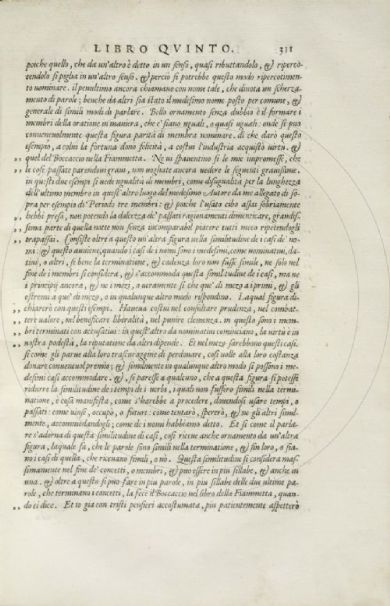 LIBRO QVINTO. 311
poiche quello, che da un'altro è detto in un sensi, quasi ributtandolo, & riperco-
tendolo si piglia in un'altro senso. & perciò si potrebbe questo modo ripercotimen-
to nominare. il penultimo ancora chiamano con nome tale, che dinota un scherza-
mento di parole; benche da altri sia stato il medesimo nome posto per comune, &
generale di simili modi di parlare. Bello ornamento senza dubbio è il formare i
membri della oratione in maniera, che e' siano uguali, o quasi uguali: onde si può
conueneuolmente questa figura parità di membra nominare. di che darò questo
esempio, a colui la fortuna donò felicità, a costui l'industria acquistò uirtù. &
quel del Boccaccio nella Fiammetta. Ne ui spauentino si le mie impromesse, che
le cose passate parendoui gravi, non uogliate ancora uedere le seguenti grauissime.
in questi due esempi si uede ugualità di membri, come disugualità per la lunghezza
dell'ultimo membro in quest'altro luogo del medesimo Autore da me allegato di so-
pra per esempio di Periodo tre membri: & poiche l'usato cibo assai soboriamente
hebbi preso, non potendo la dolcezza de' passati ragionamenti dimenticare, grandis-
sima parte di quella notte non senza incomparabol piacere tutti meco ripetendogli
trapassai. Consiste oltre a questo un'altra figura nella similitudine de i casi de' no-
mi: & questo auuiene, quando i casi de i nomi sono i medesimi, come nominatiui, da-
tiui, o altri, se bene la terminatione, & cadenza loro non fusse simile, ne solo nel
fine de i membri si considera, & s'accommoda questa similitudine de i casi, ma ne
i principij ancora, & ne i mezi, o ueramente si che que' di mezo a i primi, & gli
estremi a que' di mezo, o in qualunque altro modo rispondino. La qual figura di-
chiarerò con questi esempi. Haueua costui nel consultare prudenza, nel combat-
tere ualore, nel beneficare liberalità, nel punire clemenza. in questo sono i mem-
bri terminati con accusatiui: in quest'altro da nominatiui cominciano, la uirtù è in
nostra podestà, la riputatione da altri dipende. Et nel mezo sarebbono questi casi.
si come gli parue alla loro trascuraggine di perdonare, così uolle alla loro costanza
donare conueneuol premio; & similmente in qualunque altro modo si possono i me-
desimi casi accommodare. & si paresse a qualcuno, che a questa figura si potesse
ridurre la similitudine de i tempi de i uerbi, i quali non fussero simili nella termi-
natione, è cosa manifesta, come s'harebbe a procedere, dicendosi usare tempo, o
passati: come uinse, occupò, o futuri: come tentarà, spererò, & ne gli altri simil-
mente, accommodandogli; come de i nomi habbiamo detto. Et si come il parla-
re s'adorna di questa similitudine di casi, così riceue anche ornamento da un'altra
figura, laquale fà, che le parole sono simili nella terminatione, & fin loro, o sia-
no i casi di quella, che riceuano simili, o nò. Questa similitudine si considera mas-
simamente nel fine de' concetti, o membri, & può essere in più sillabe, & anche in
una. & oltre a questo si può fare in più parole, in più sillabe delle due ultime pa-
role, che terminano i concetti, la fece il Boccaccio nel libro della Fiammetta, quan-
do ei dice. Et io già con tristi pensieri accostumata, più patientemente aspetterò